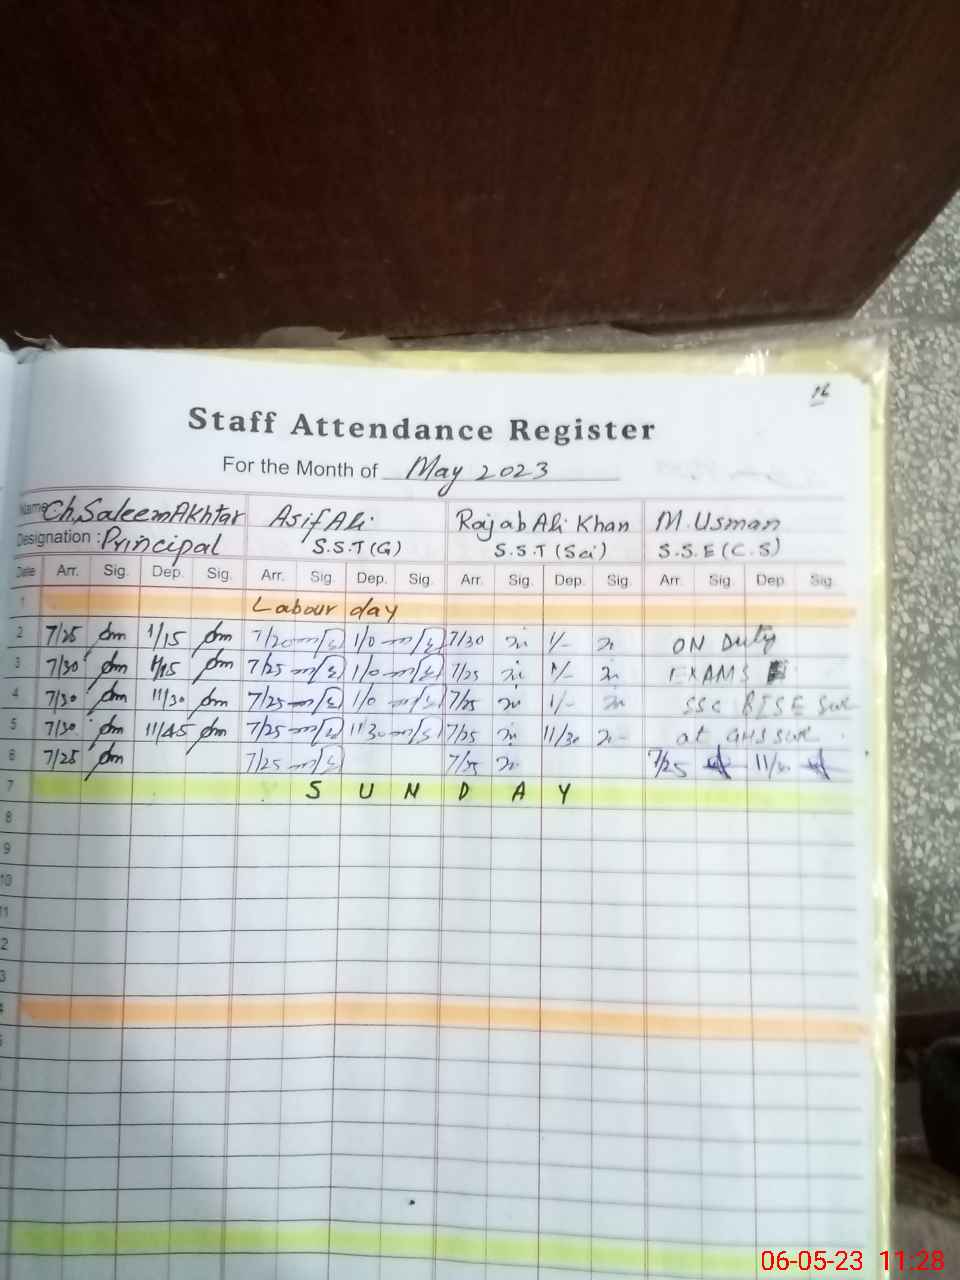 16
Staff Attendance Register
For the Month of May 2023
Name Ch. Saleem Akhtar Asif Ali Rajab Ali Khan M. Usman
Designation : Principal S.S.T (G) S.S.T (Sci) S.S.E (C.S)
Date Arr. Sig. Dep. Sig. Arr. Sig. Dep. Sig. Arr. Sig. Dep. Sig. Arr. Sig. Dep. Sig.
1 Labour day
2 7/25 1/15 7/20 1/0 7/30 1/- ON Duty
3 7/30 1/15 7/25 1/0 7/25 1/- EXAMS
4 7/30 11/30 7/25 1/0 7/25 1/- SSC BISE SWL
5 7/30 11/45 7/25 11/30 7/25 11/30 at GHS SWL
6 7/25 7/25 7/25 7/25
7 S U N D A Y
8
9
10
11
2
3
4
06-05-23 11:28